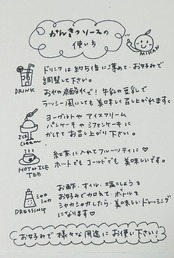 かんきつソースの
使い方
MIKAN
ドリンクは約5倍に薄めて、お好みで
調整して下さい。
DRINK
お水や炭酸水で! 牛乳や豆乳で
ラッシー風にしても美味しく召し上がれます
ヨーグルトやアイスクリーム
パンケーキやシフォンケーキに
かけてお召し上がり下さい。
ICE
CREAM
紅茶に入れてフルーツティに♡
ホットでもコールドでも美味しいです。
HOT or ICE
TEA
お酢、オイル、塩こしょうを
お好みで加えて、ボトルを
シャカシャカしたら、美味しいドレッシング
になります♡
DRESSING
お好みで様々な用途にお使い下さい!